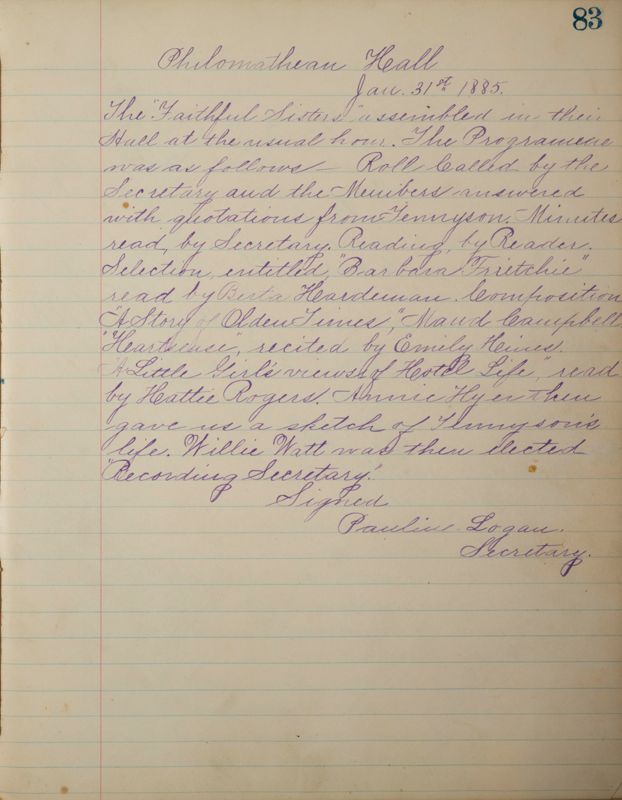 83
Philomathean Hall
Jan. 31st 1885.
The "Faithful Sisters" assembled in their
Hall at the usual hour. The Programme
was as follows — Roll Called by the
Secretary and the Members answered
with quotations from Tennyson. Minutes
read, by Secretary. Reading, by Reader.
Selection, entitled, "Barbara Frietchie"
read by Berta Hardeman. Composition
"A Story of Olden Times," Maud Campbell
"Heartsease", recited by Emily Hines.
"A Little Girl's views of Hotel Life," read
by Hattie Rogers. Annie Hyer then
gave us a sketch of Tennyson's
life. Willie Watt was then elected
"Recording Secretary."
Signed
Pauline Logan.
Secretary.